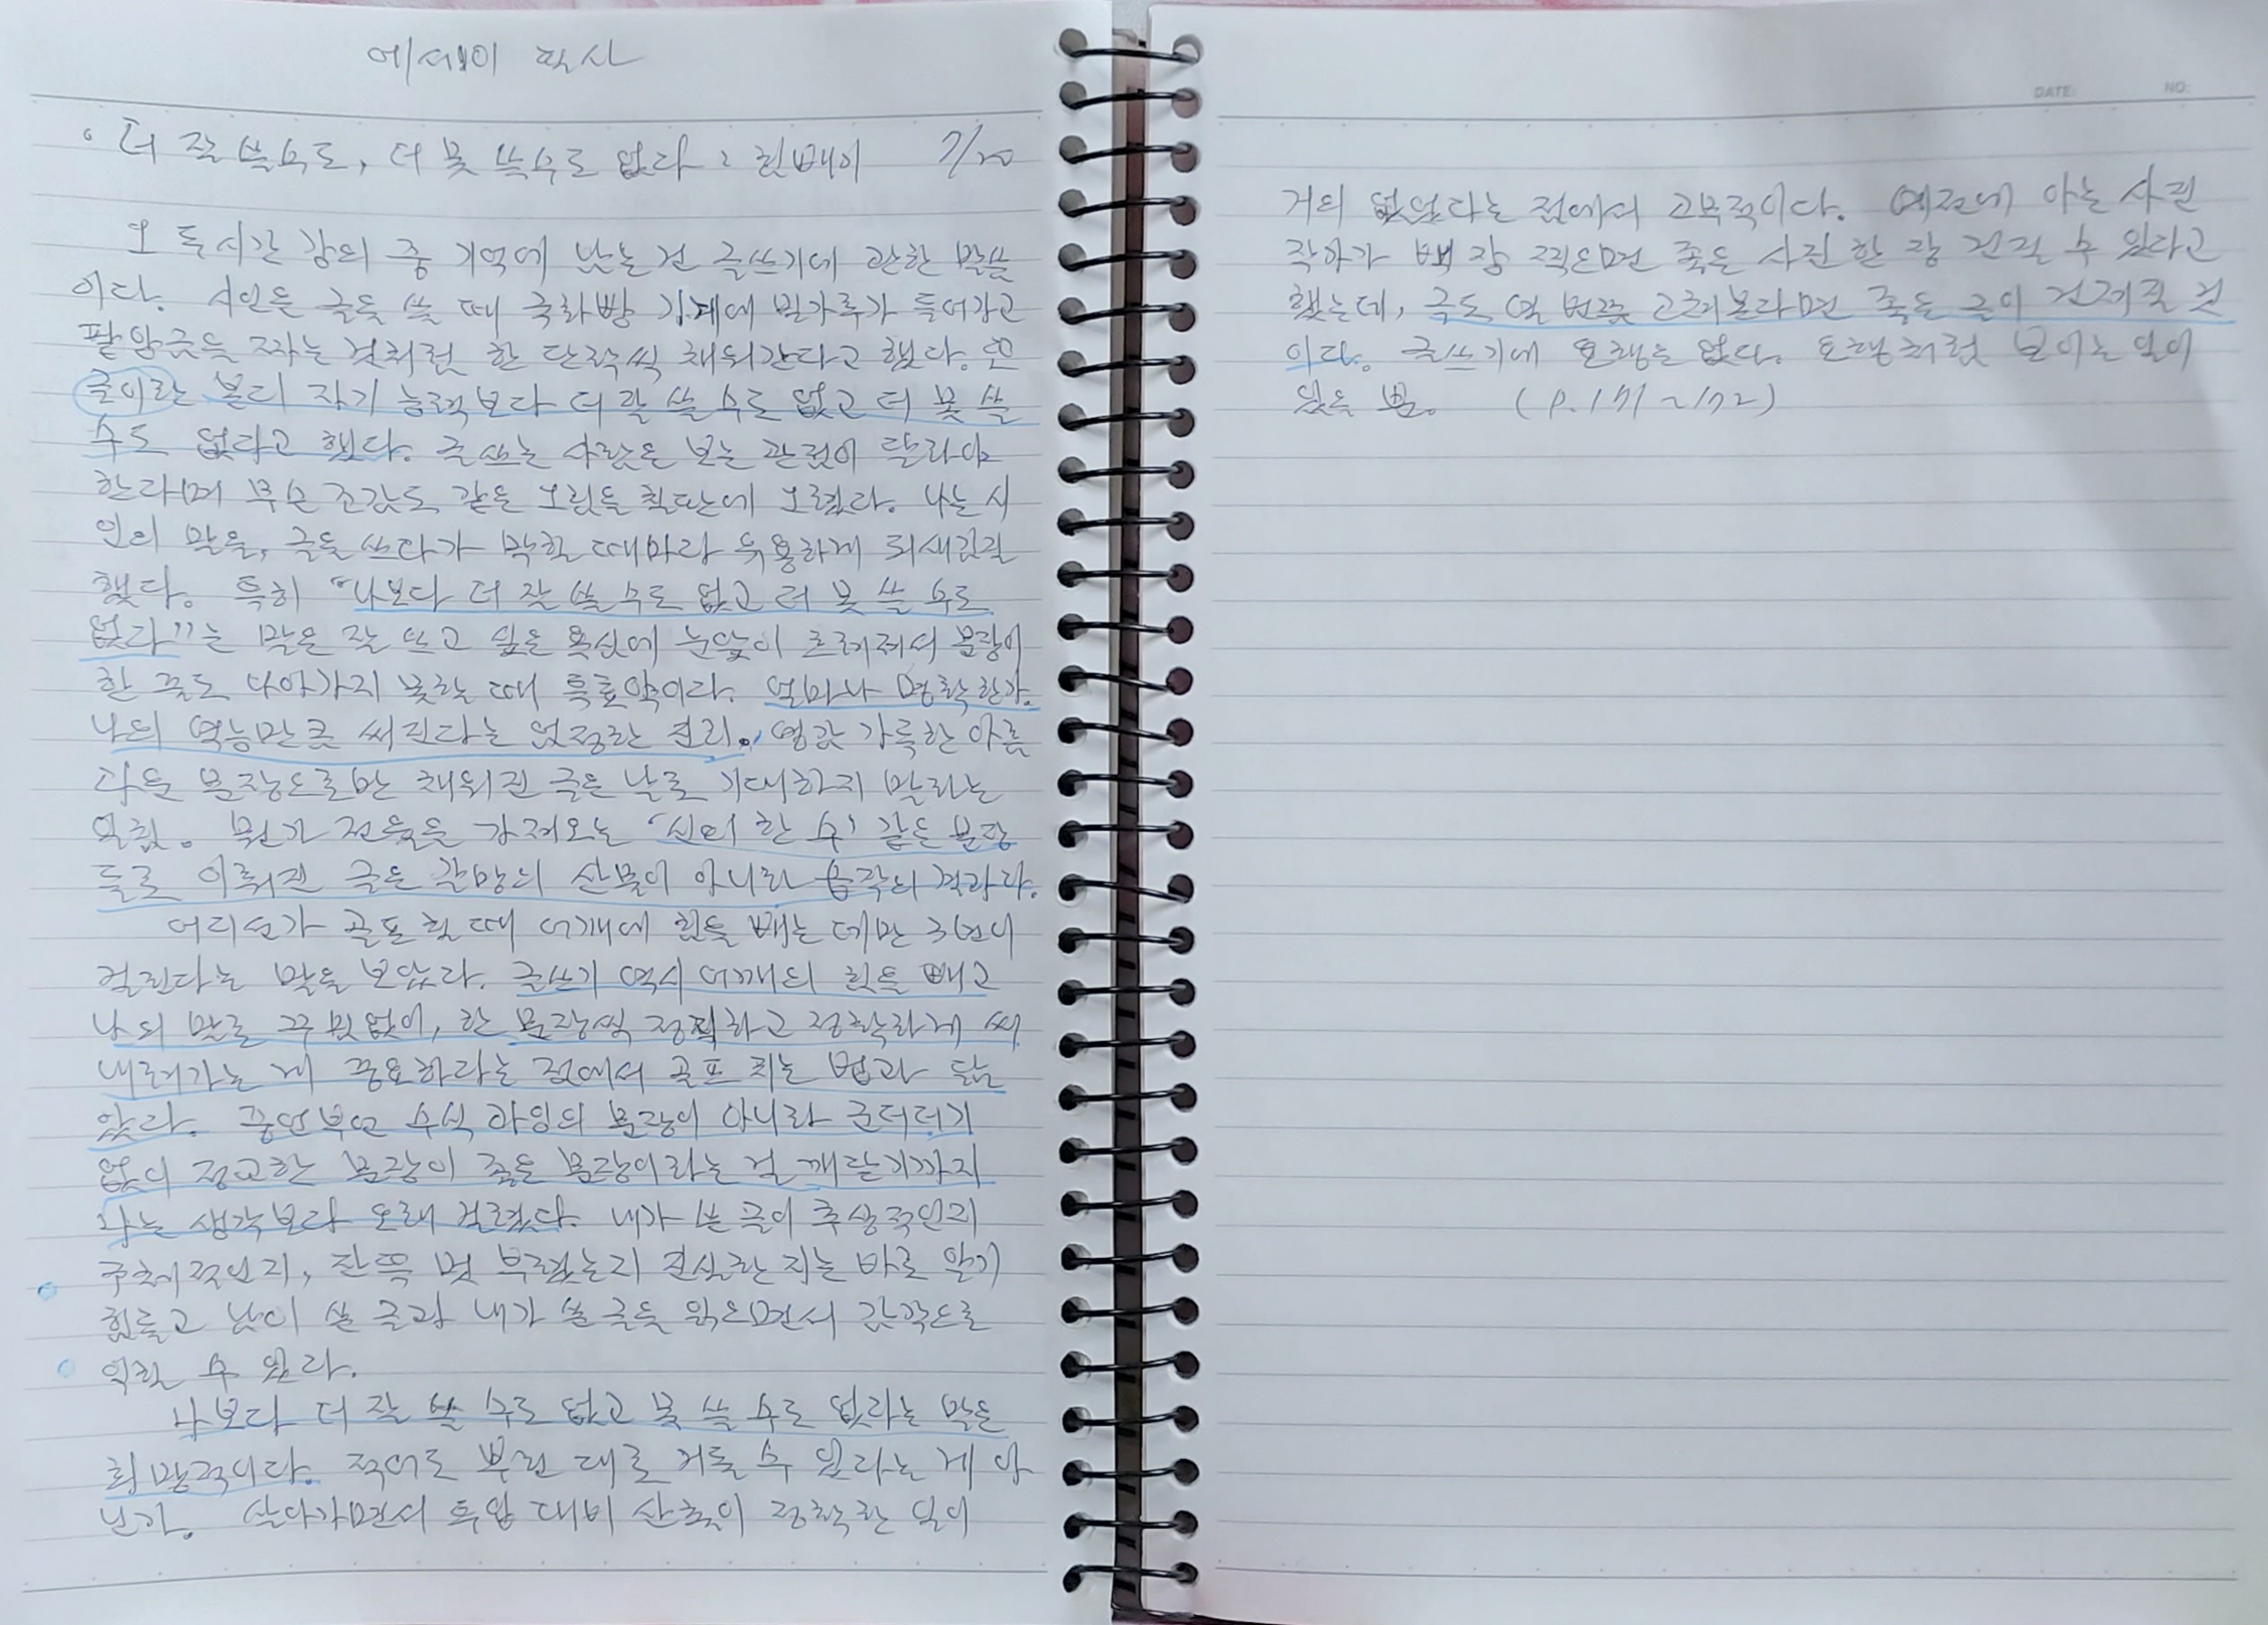 에세이 필사
• 더 잘 쓸수도, 더 못 쓸수도 없다 : 힘빼이 7/20
오 특시간 강의 중 기억에 남는 건 글쓰기에 관한 말씀
이다. 시인은 글을 쓸 때 국화빵 기계에 밀가루가 들어가고
팥앙금을 짜는 것처럼 한 단락씩 채워간다고 했다. 또
글이란 본디 자기 능력보다 더 잘 쓸 수도 없고 더 못 쓸
수도 없다고 했다. 글쓰는 사람은 보는 관점이 달라야
한다며 무슨 조감도 같은 그림을 칠판에 그렸다. 나는 시
인의 말을, 글을 쓰다가 막힐 때마다 유용하게 되새김질
했다. 특히 "나보다 더 잘 쓸 수도 없고 더 못 쓸 수도
없다"는 말은 잘 쓰고 싶은 욕심에 눈앞이 흐려져서 문장이
한 줄도 나아가지 못할 때 특효약이다. 얼마나 명확한가.
나의 역능만큼 써진다는 엄정한 진리. 영감 가득한 아름
다운 문장으로만 채워진 글은 날로 기대하지 말라는
일침. 뭔가 전율을 가져오는 '신의 한 수' 같은 문장
들로 이뤄진 글은 갈망의 산물이 아니라 동작의 결과다.
어디선가 골프 칠 때 어깨에 힘을 빼는 데만 3년이
걸린다는 말을 보았다. 글쓰기 역시 어깨의 힘을 빼고
나의 말로 꾸밈없이, 한 문장씩 정직하고 정확하게 써
내려가는 게 중요하다는 점에서 골프 치는 법과 닮
았다. 중언부언 수식 과잉의 문장이 아니라 군더더기
없이 정교한 문장이 좋은 문장이라는 걸 깨닫기까지
나는 생각보다 오래 걸렸다. 내가 쓴 글이 추상적인지
구체적인지, 잔뜩 멋 부렸는지 진실한지는 바로 알기
힘들고 남이 쓴 글과 내가 쓴 글을 읽으면서 감각으로
익힐 수 있다.
나보다 더 잘 쓸 수도 없고 못 쓸 수도 없다는 말은
희망적이다. 적어도 뿌린 대로 거둘 수 있다는 게 아
닌가. 살아가면서 투입 대비 산출이 정확한 일이
DATE: NO:
거의 없었다는 점에서 고무적이다. 예전에 아는 사진
작가가 백 장 찍으면 좋은 사진 한 장 건질 수 있다고
했는데, 글도 열 번쯤 고쳐본다면 좋은 글이 건져질 것
이다. 글쓰기에 요행은 없다. 요행처럼 보이는 일이
있을 뿐. (p.171~172)